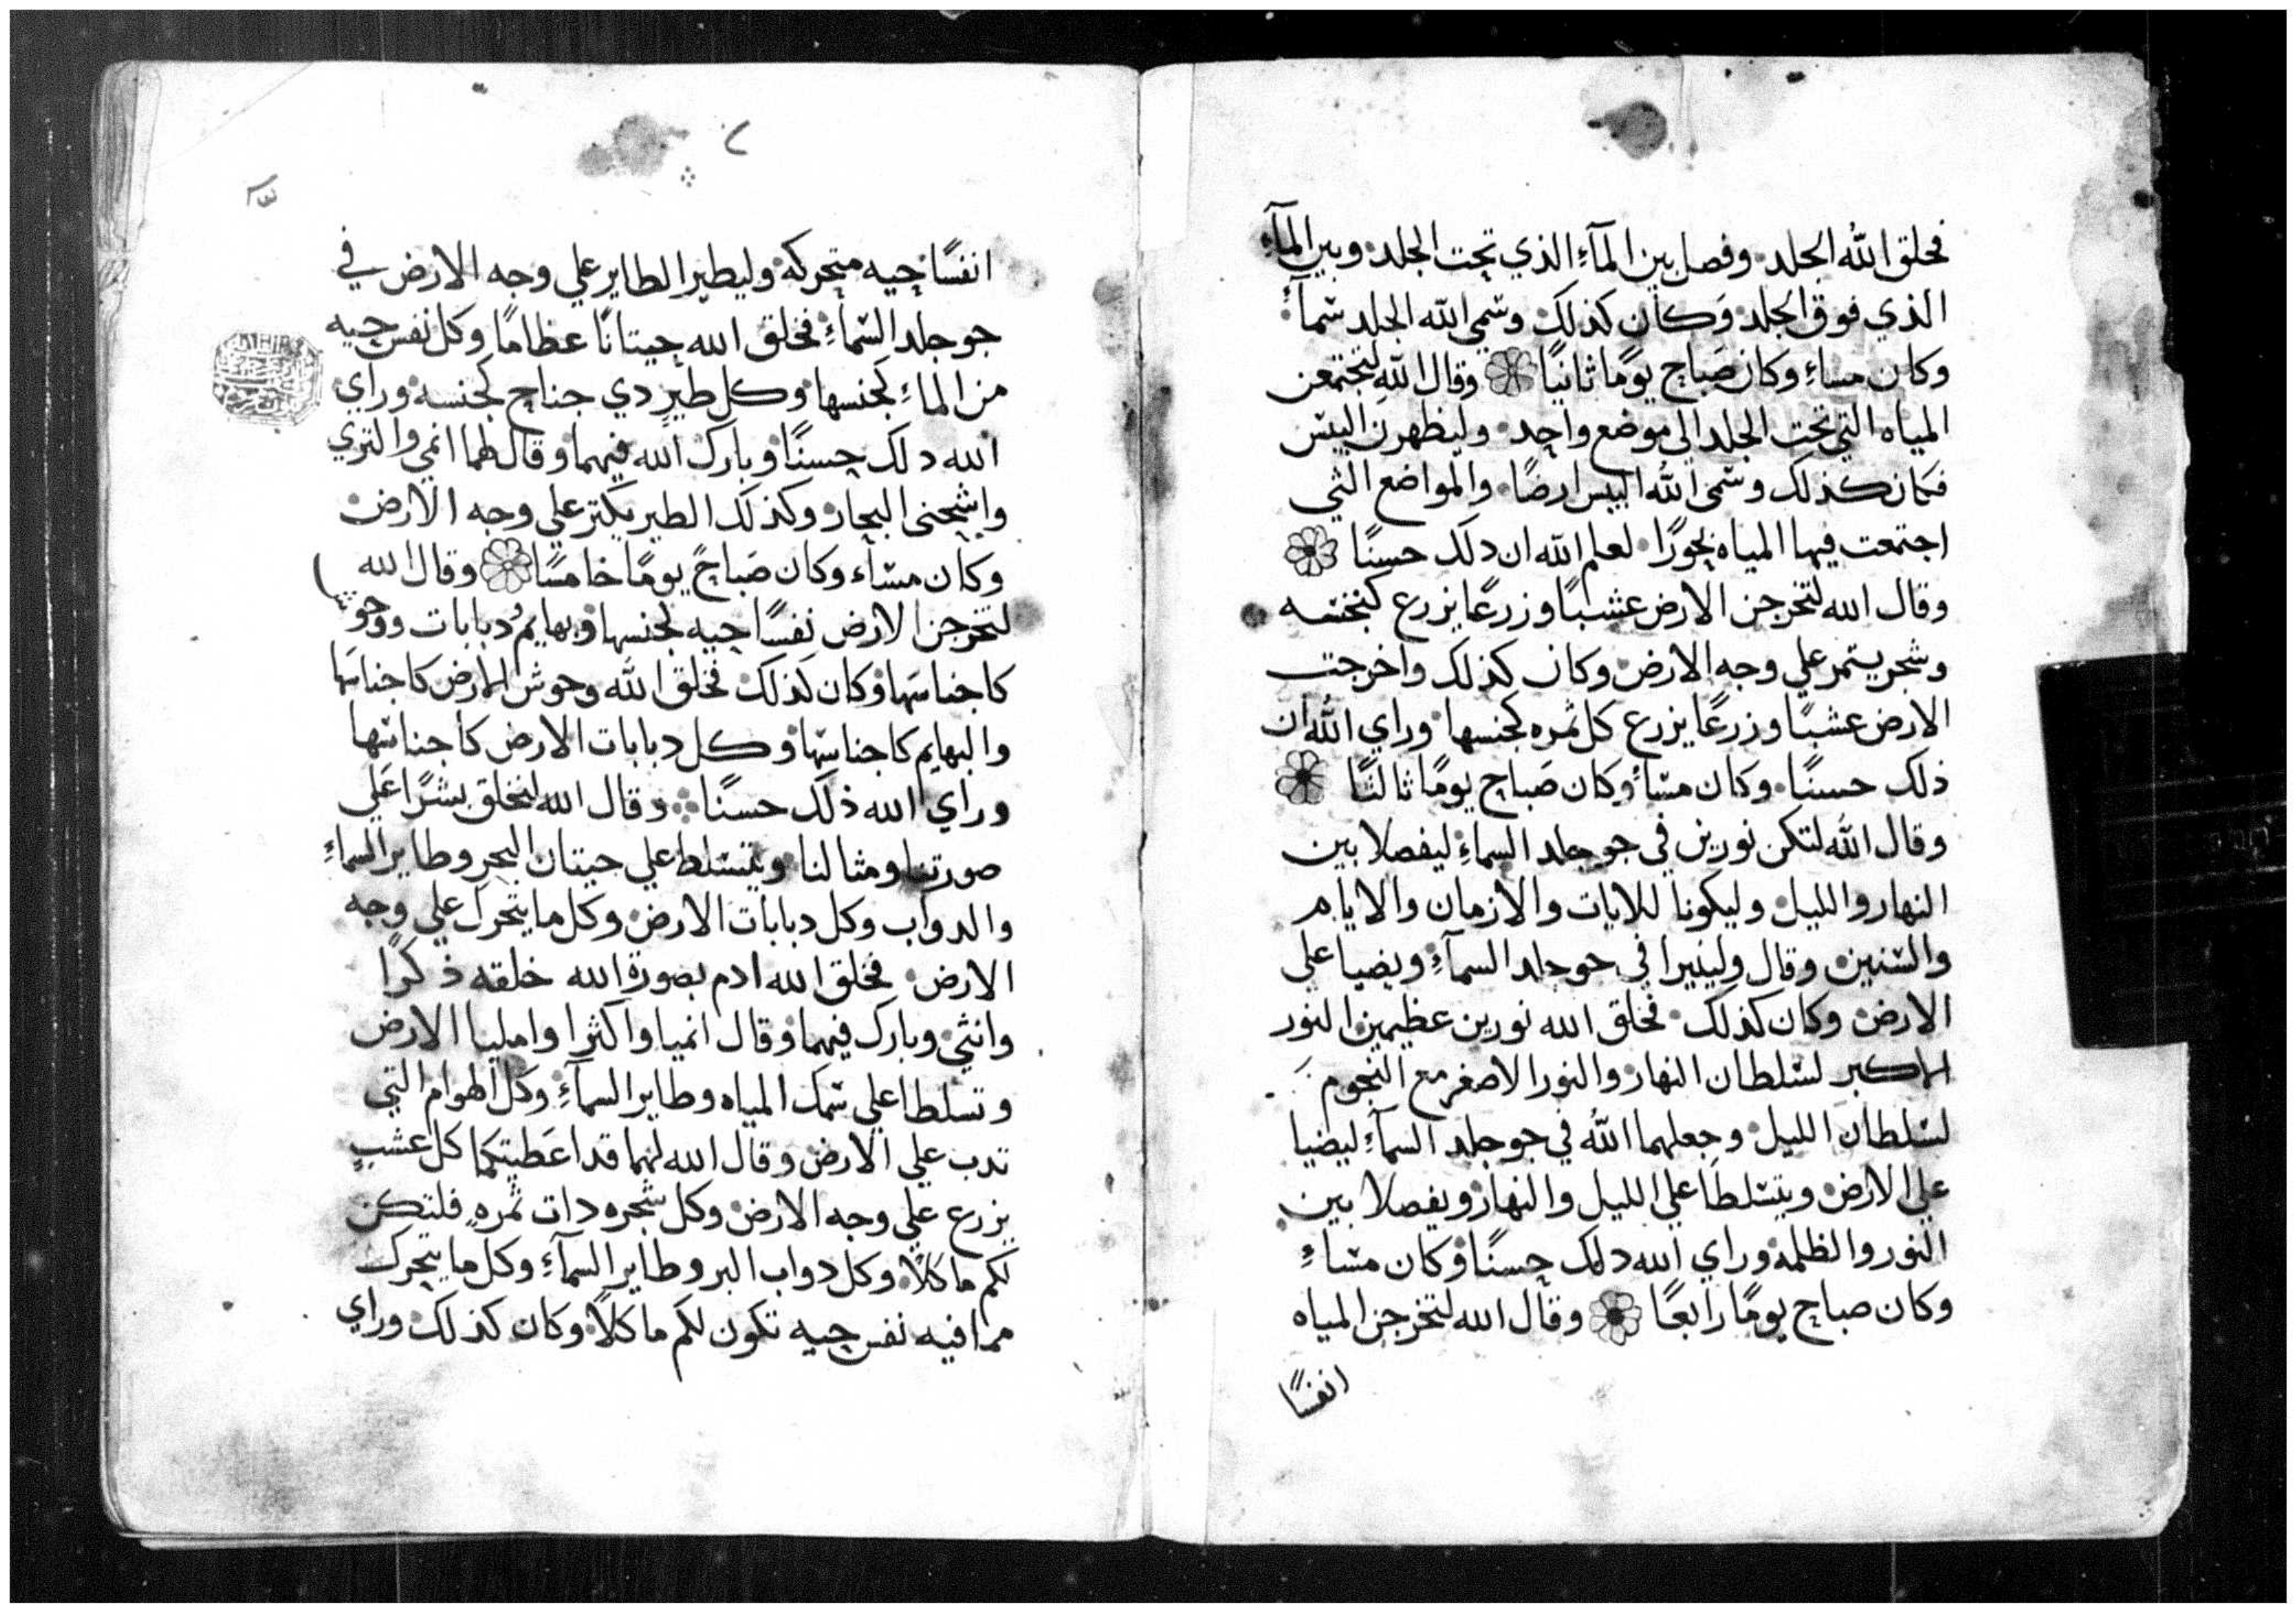 فخلق الله الجلد وفصل بين المآءِ الذي تحت الجلد وبين المآءِ
الذي فوق الجلد وَكان كذلك وسمي الله الجلد سمآءً
وكان مساءِ وكان صَباح يومًا ثانيًا وقال الله لتجتمعن
المياه التي تحت الجلد الي موضع واحد وليظهرن اليبس
فكان كذلك وسمى الله اليبس ارضًا والمواضع التي
اجتمعت فيها المياه بحورًا لعلم الله ان دلك حسنًا
وقال الله لتخرجن الارض عشبًا وزرعًا يزرع كنجنسه
وشجر يتمر علي وجه الارض وكان كذلك واخرجت
الارض عشبًا وزرعًا يزرع كل ثمره كجنسها وراي الله ان
ذلك حسنًا وكان مسأ وكان صَباح يومًا ثالثًا
وقال الله لتكن نورين في جو جلد السماءِ ليفصلا بين
النهار والليل وليكونا للايات والازمان والايام
والسنين وقال ولينيرا في جو جلد السمآءِ ويضيا على
الارض وكان كذلك فخلق الله نورين عظيمين النور
الاكبر لسلطان النهار والنور الاصغر مع النجوم
لسلطان الليل وجعلهما الله في جو جلد السمآءِ ليضيا
على الارض ويتسلطا على الليل والنهار ويفصلا بين
النور والظلمه وراي الله دلك حسنًا وكان مساءِ
وكان صباح يومًا رابعًا وقال الله لتخرجن المياه
انفسًا
انفسًا حيه متحركه وليطير الطاير علي وجه الارض في
جو جلد السماءِ فخلق الله حيتانًا عظامًا وكل نفس حيه
من الماءِ كجنسها وكل طيرٍ دي جناح كجنسه وراي
الله دلك حسنًا وبارك الله فيهما وقال لهما انمي والتري
واشحني البحار وكذلك الطير يكتر علي وجه الارض
وكان مسآء وكان صَباحً يومًا خامسًا وقال الله
لتخرجن الارض نفسًا حيه لجنسها وبهايمُ دبابات ووحوش
كاجناسَها وكان كذلك فخلق الله وحوش الارض كاجناسَها
والبهايم كاجناسها وكل دبابات الارض كاجناسها
وراي الله ذلك حسنًا وقال الله لنخلق بشرًا عَلي
صورتنا ومثالنا ويتسلط علي حيتان البحرِ وطاير السماءِ
والدواب وكل دبابات الارض وكل ما يتحرك علي وجه
الارض فخلق الله ادم بصورة الله خلقه ذكرًا
وانثي وبارك فيهما وقال انميا واكثرا واملیا الارض
وتسلطا علي سمك المياه وطاير السمآءِ وكل الهوام التي
تدب علي الارض وقال الله لهما قد اعَطيتكما كل عشبٍ
يزرع علي وجه الارض وكل شجره دات ثمرهِ فلتكن
لكم ماكلاً وكل دواب البر وطاير السمآءِ وكل ما يتحرك
مما فيه نفس حيه تكون لكم ماكلاً وكان كذلك وراي